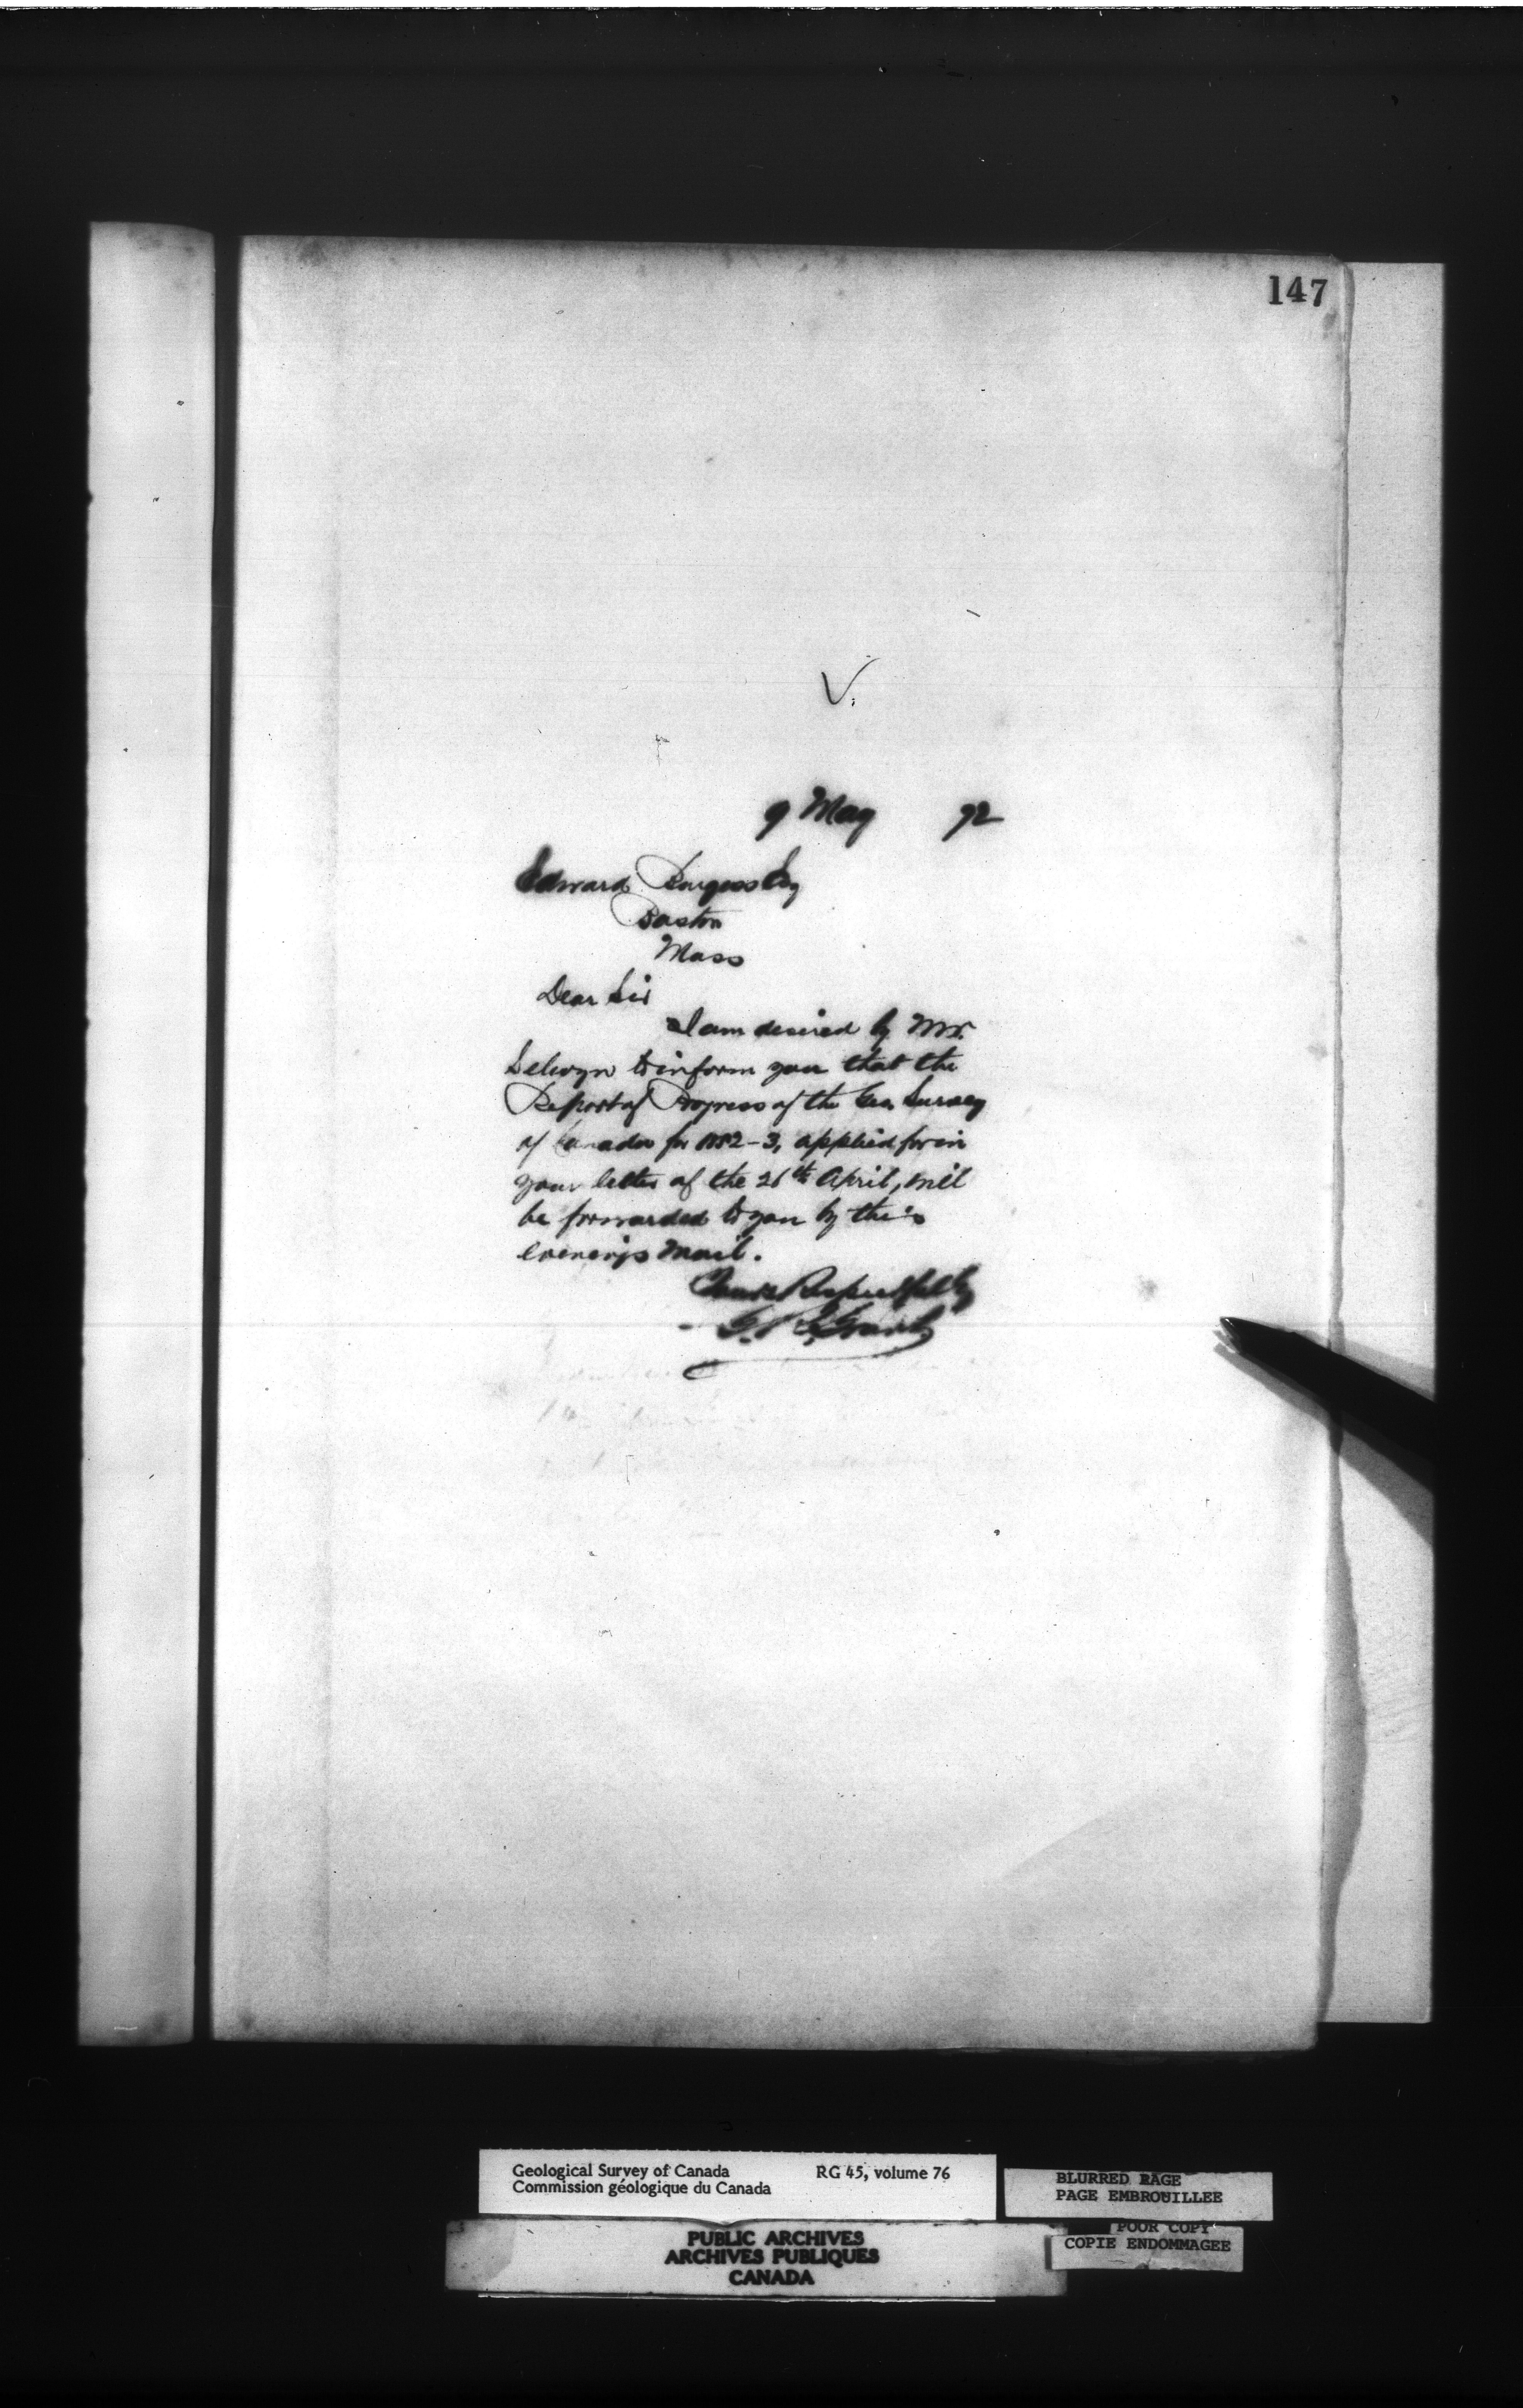 147
9 May 92
Edward Burgess Esq
Boston
Mass
Dear Sir
I am desired by Mr.
Selwyn to inform you that the
Report of Progress of the Geo. Survey
of Canada for 1882-3, applied for in
your letter of the 26th April, will
be forwarded to you by this
evenings mail.
Yours Respectfully
Grant
Geological Survey of Canada RG 45, volume 76
Commission géologique du Canada
BLURRED PAGE
PAGE EMBROUILLEE
POOR COPY
COPIE ENDOMMAGEE
PUBLIC ARCHIVES
ARCHIVES PUBLIQUES
CANADA